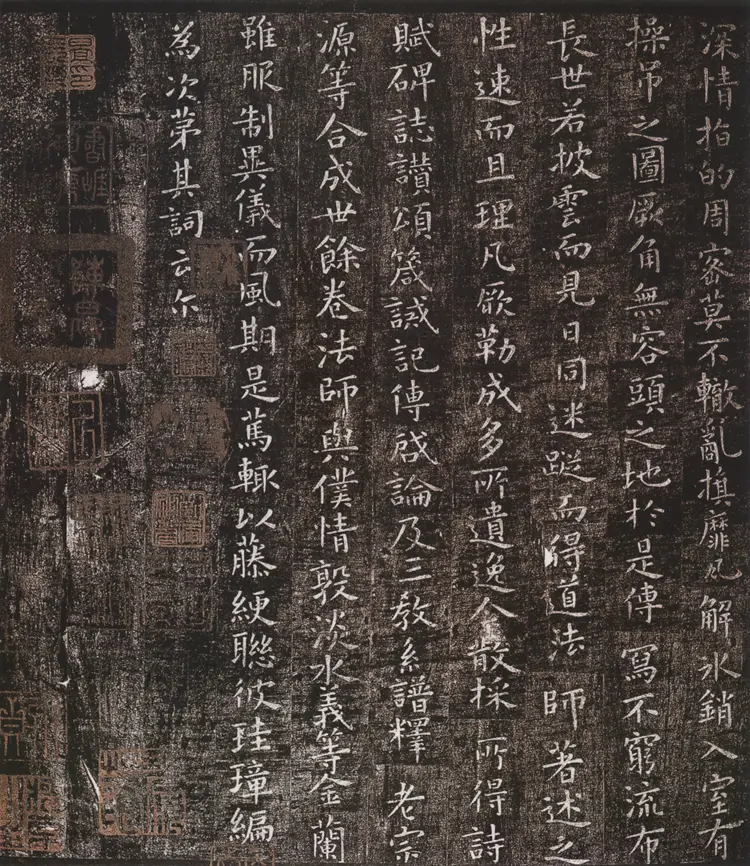 深情指的周密莫不轍亂旗靡瓦解氷銷入室有
操吊之圖厥角無容頭之地於是傳寫不窮流布
長世若披雲而見日同迷蹤而得道法師著述之
性速而且理凡厥勒成多所遺逸今散採所得詩
賦碑誌讚頌箴誡記傳啟論及三教系譜釋老宗
源等合成卅餘卷法師與僕情敦淡水義等金蘭
雖服制異儀而風期是篤輙以藤綆聯彼珪璋編
為次第其詞云尒